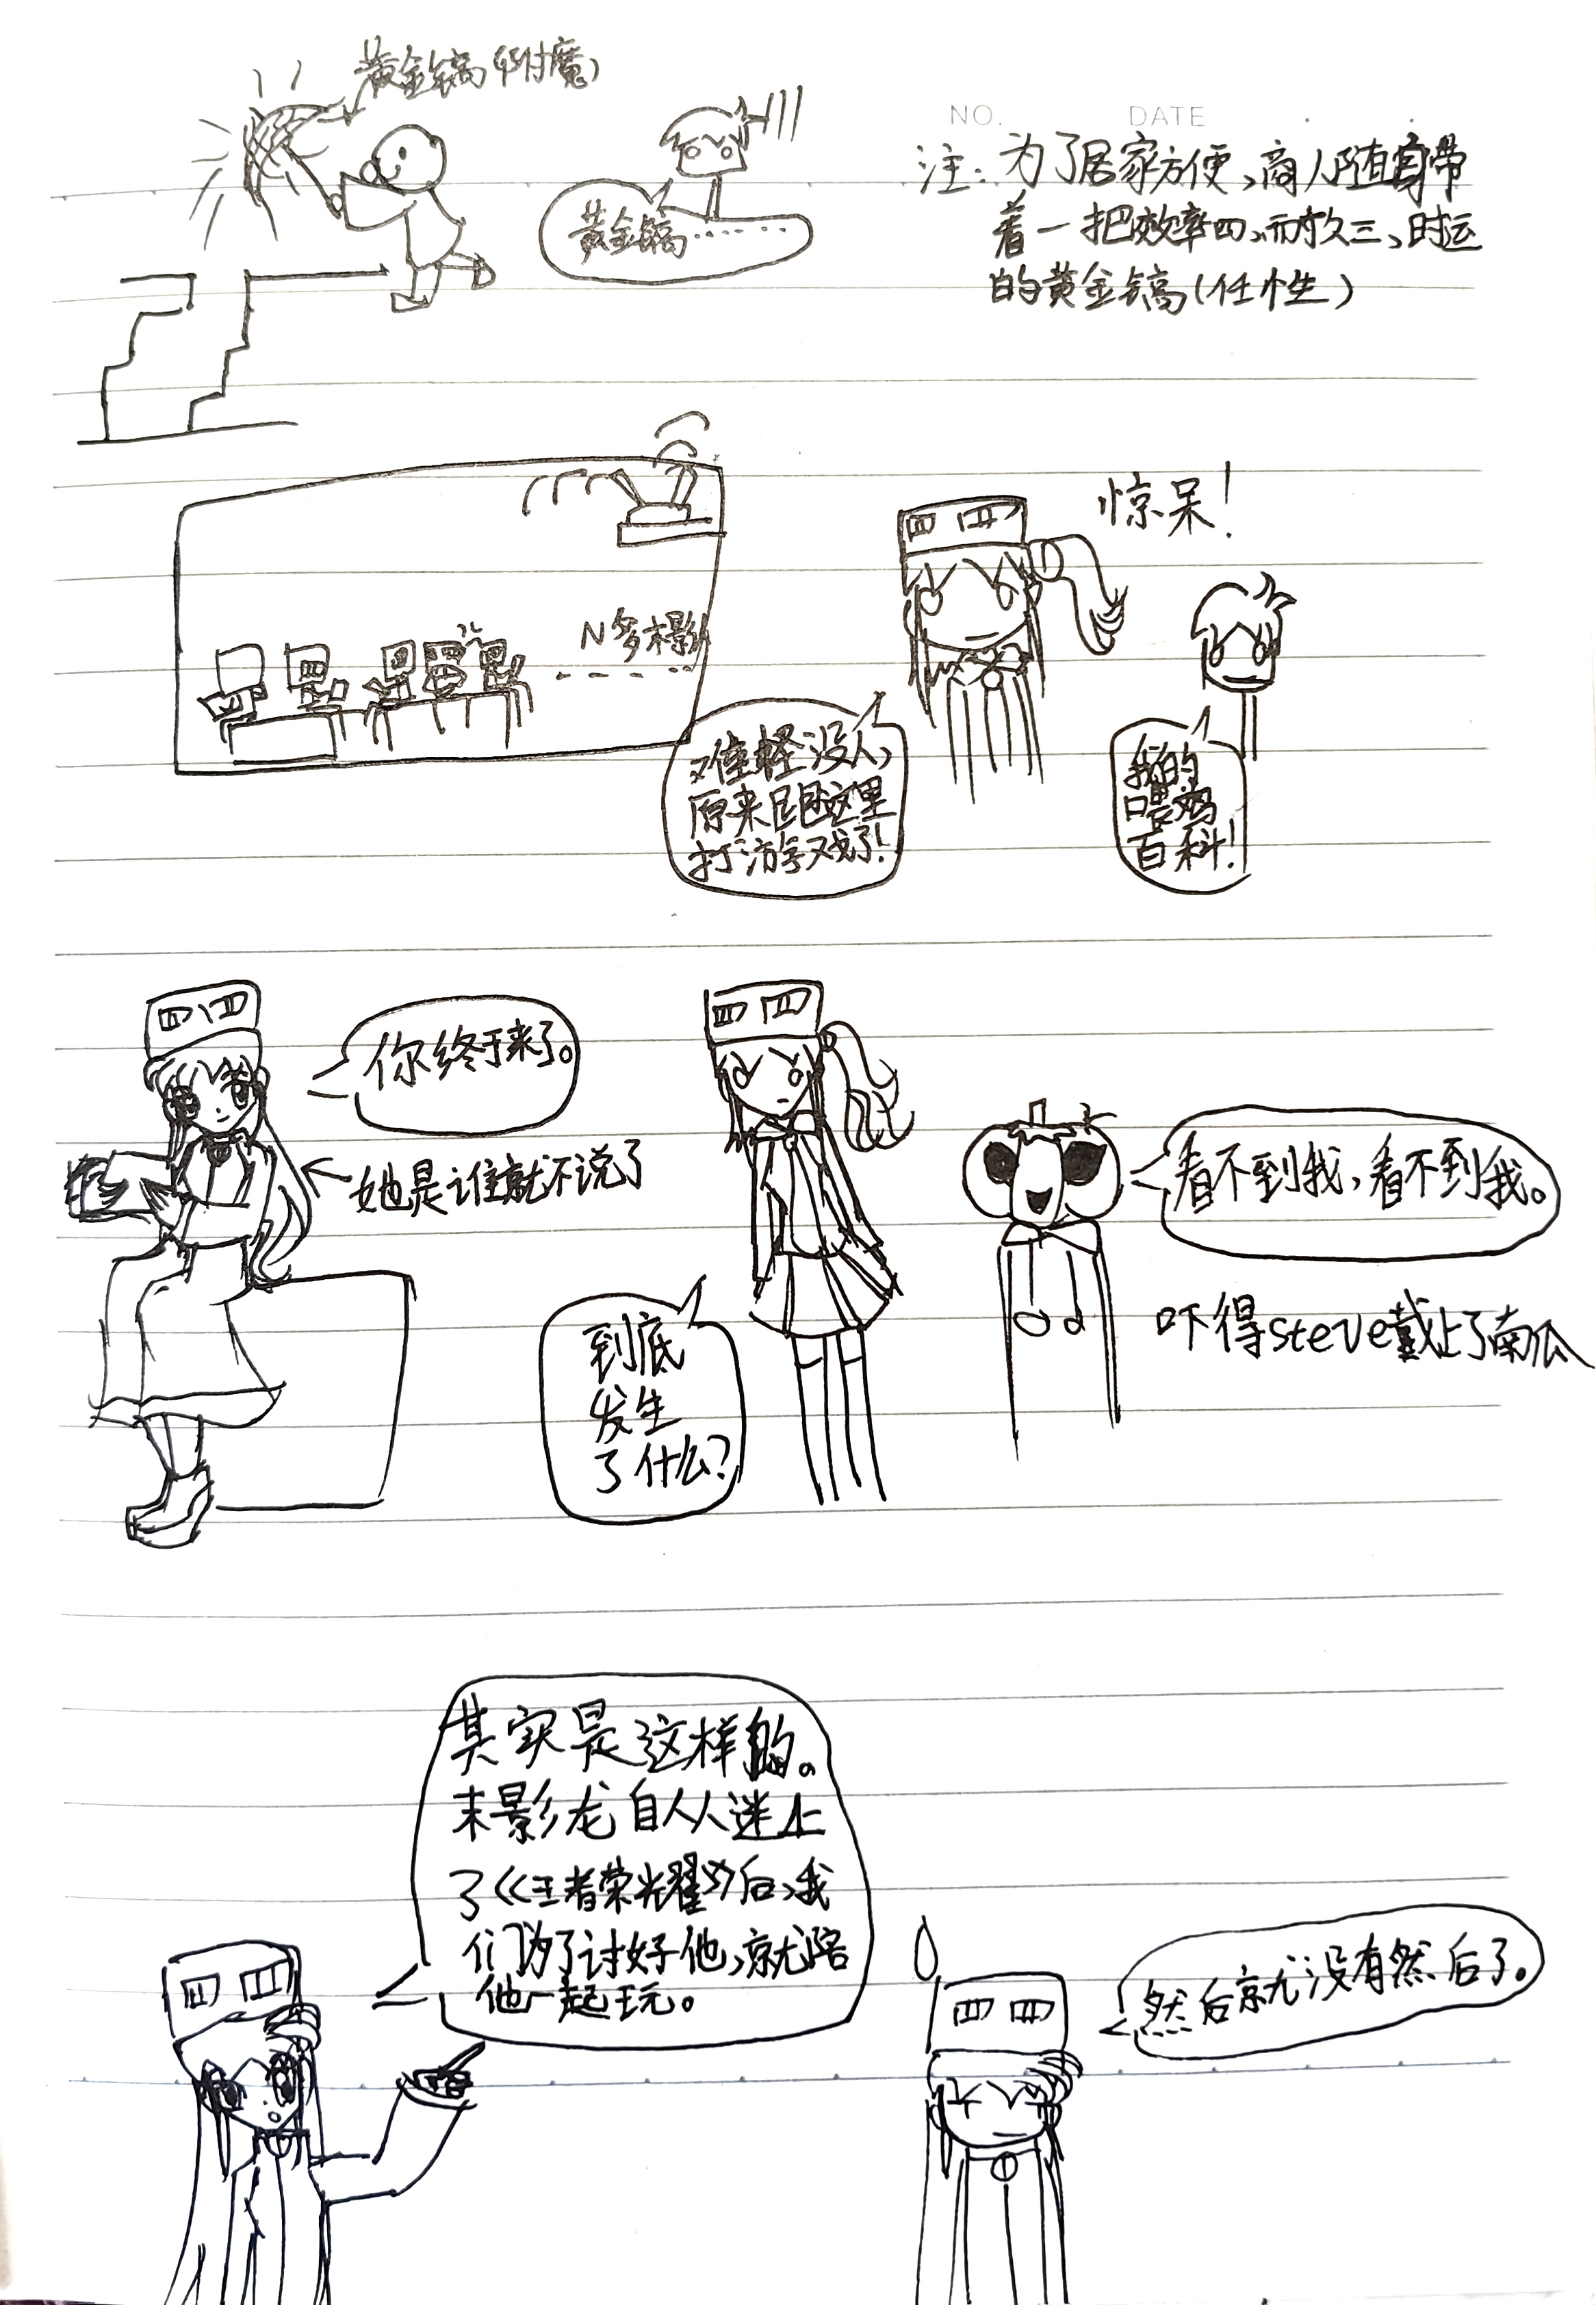 黄金镐(附魔)
黄金镐……
NO.
DATE
注:为了居家方便,商人随身带
着一把效率四、耐久三、时运
的黄金镐(任性)
N多末影人
惊呆!
难怪没人,
原来跑这里
打游戏了!
我的
喂妈
百科!
你终于来了。
她是谁就不说了
到底
发生
了什么?
看不到我,看不到我。
吓得steve戴上了南瓜
其实是这样的。
末影龙自从迷上
了《王者荣耀》后,我
们为了讨好他,就陪
他一起玩。
然后就没有然后了。